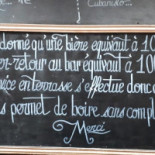 4€
Cubanisto... 
donné qu'une bière équivaut à 10
er-retour au bar équivaut à 100
vice en terrasse s'effectue donc
s permet de boire sans comp
Merci